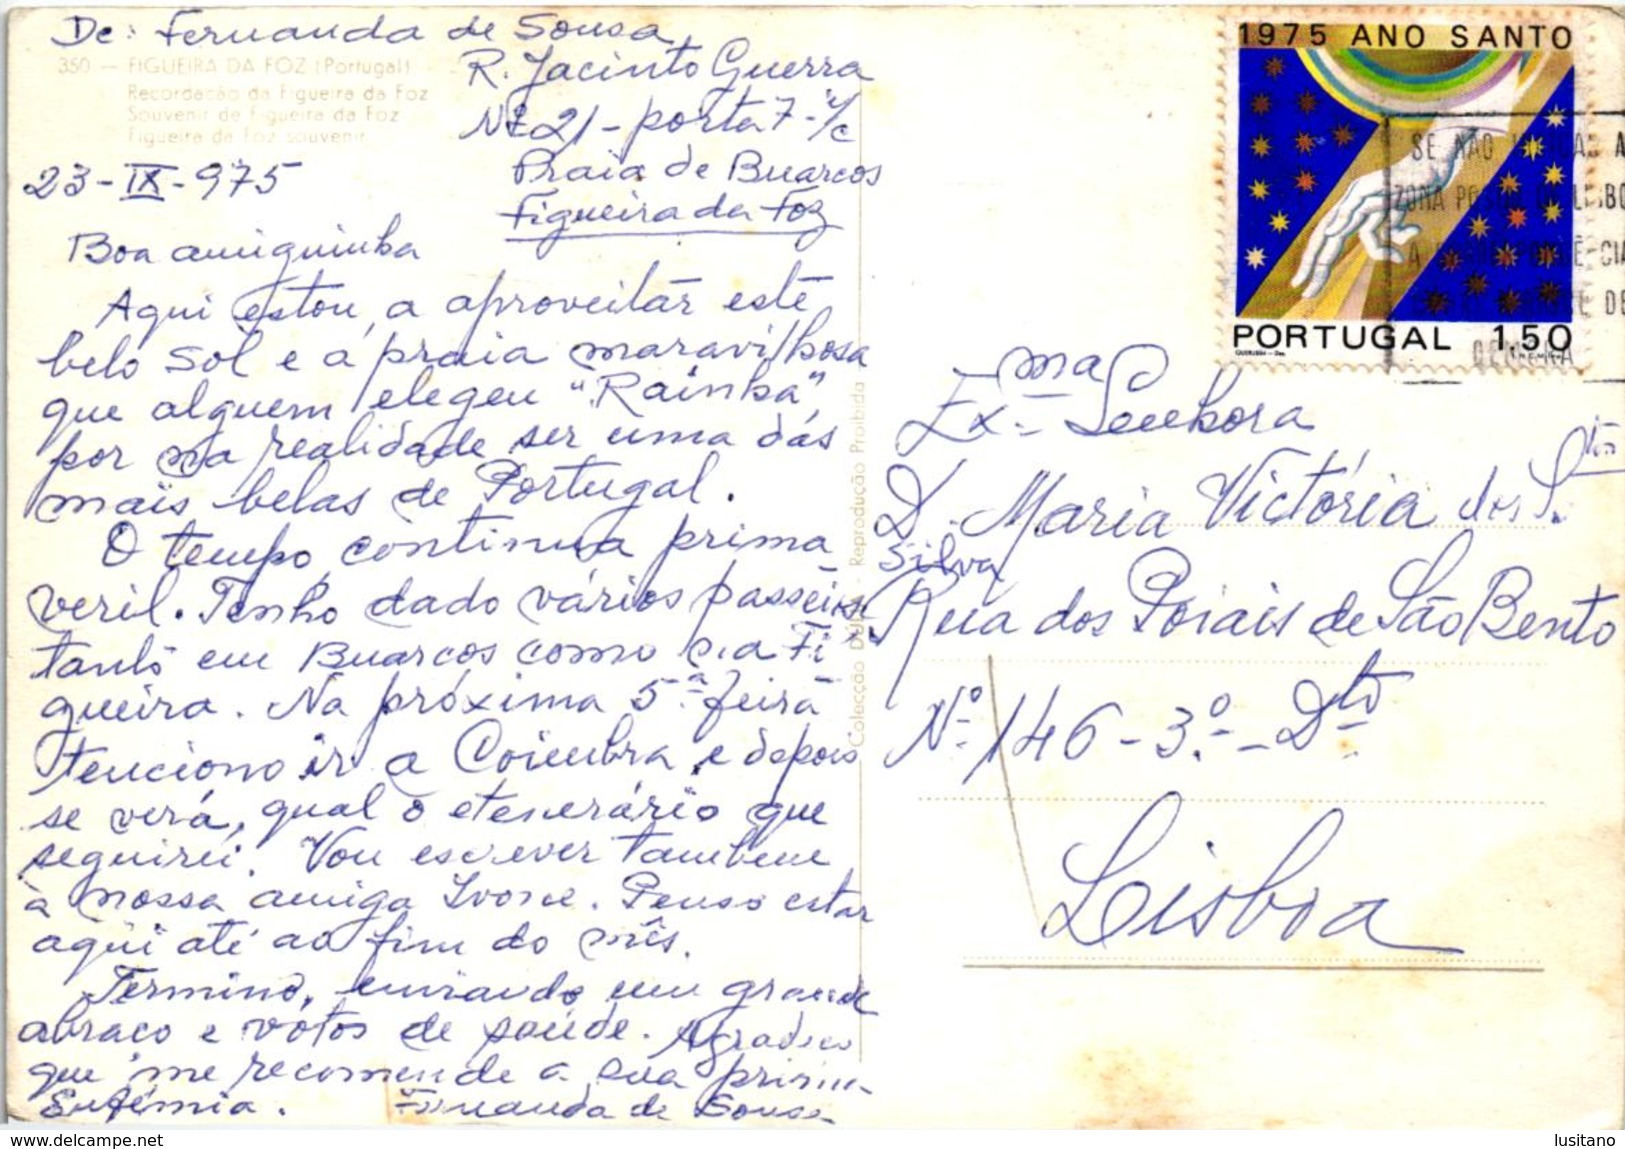 De: Fernanda de Sousa
350 — FIGUEIRA DA FOZ (Portugal)
Recordação da Figueira da Foz
Souvenir de Figueira da Foz
Figueira da Foz souvenir
R. Jacinto Guerra
Nº 21 - porta 7 - r/c
Praia de Buarcos
Figueira da Foz
23-IX-975
Boa amiguinha
Aqui estou, a aproveitar este
belo sol e a praia maravilhosa
que alguem elegeu "Rainha",
por na realidade ser uma das
mais belas de Portugal.
O tempo continua prima
veril. Tenho dado vários passeios
tanto em Buarcos como na Fi
gueira. Na próxima 5ª feira
tenciono ir a Coimbra, e depois
se verá, qual o etenerário que
seguirei. Vou escrever tambem
à nossa amiga Ivone. Penso estar
aqui até ao fim do mês.
Termino, enviando um grande
abraço e votos de saúde. Agradeço
que me recomende a sua prima
Eufémia. Fernanda de Sousa
Colecção DÚLIA - Reprodução Proibida
1975 ANO SANTO
PORTUGAL 1.50
SE NÃO A
ZONA POSTAL DE LISBO
A CIA
DE
Ex.ma Senhora
D. Maria Victória dos S.
Silva
Rua dos Poiais de São Bento
Nº 146 - 3.º - Dto
Lisboa
www.delcampe.net
lusitano